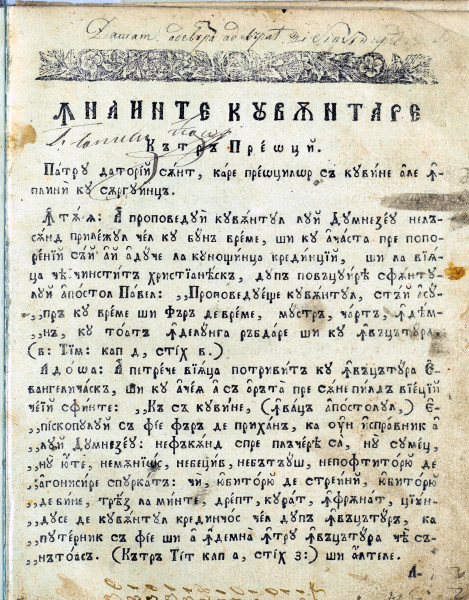 ѪНАИНТЕ КꙋВѪНТАРЕ
Кътръ Преѡцй.
Патрꙋ даторїй сѫнт, каре преѡцилѡр съ кꙋвине але ꙟ
плини кꙋ сѫргꙋинцъ.
Ꙟтѫѧ: А проповедꙋй кꙋвѫнтꙋл лꙋй Дꙋмнезеꙋ нелъ-
сѫнд прилежꙋл чел кꙋ бꙋнъ време, ши кꙋ ачаста пре попо-
ренїй съй ай адꙋче ла кꙋнощинца крединций, ши ла вїѧ-
ца чѣ чинстить христїанѣскъ, дꙋпъ повъцꙋире сфѫнтꙋ-
лꙋй апостол Павел: „Проповедꙋеще кꙋвѫнтꙋл, стъй асꙋ-
„пръ кꙋ време ши фъръ де време, мꙋстръ, чартъ, ꙟдѣм-
„нъ, кꙋ тоатъ ꙟделꙋнга ръбдаре ши кꙋ ꙟвъцътꙋра.
(в: Тїм: кап д, стїх в.)
Адоѡа: А петрече вїѧца потривить кꙋ ꙟвъцътꙋра Е-
вангеличаскъ, ши кꙋ ачеѧ а съ арѣта пре сѫне пилдъ вїецїй
чей сфинте: „Къ съ кꙋвине, (ꙟвацъ апостолꙋл,) Е-
„пїскопꙋлꙋй съ фїе фъръ де приханъ, ка ꙋнꙋй исправник а
„лꙋй Дꙋмнезеꙋ: нефъкѫнд спре плъчерѣ са, нꙋ сꙋмец,
„нꙋ юте, немѫниѡс, небецив, небътъꙋш, непофтиторю де
„агонисире спꙋркать: чи, юбиторю де стреинй, юбиторю
„де бине, трѣз ла минте, дрепт, кꙋрат, ꙟфрѫнат, цїин-
„дꙋсе де кꙋвѫнтꙋл крединчос чел дꙋпъ ꙟвъцътꙋръ, ка
„пꙋтерник съ фїе ши а ꙟдемна ꙟтрꙋ ꙟвъцътꙋра чѣ съ-
„нътоасъ. (Кътръ Тїт кап а, стїх з:) ши алтеле.
А-